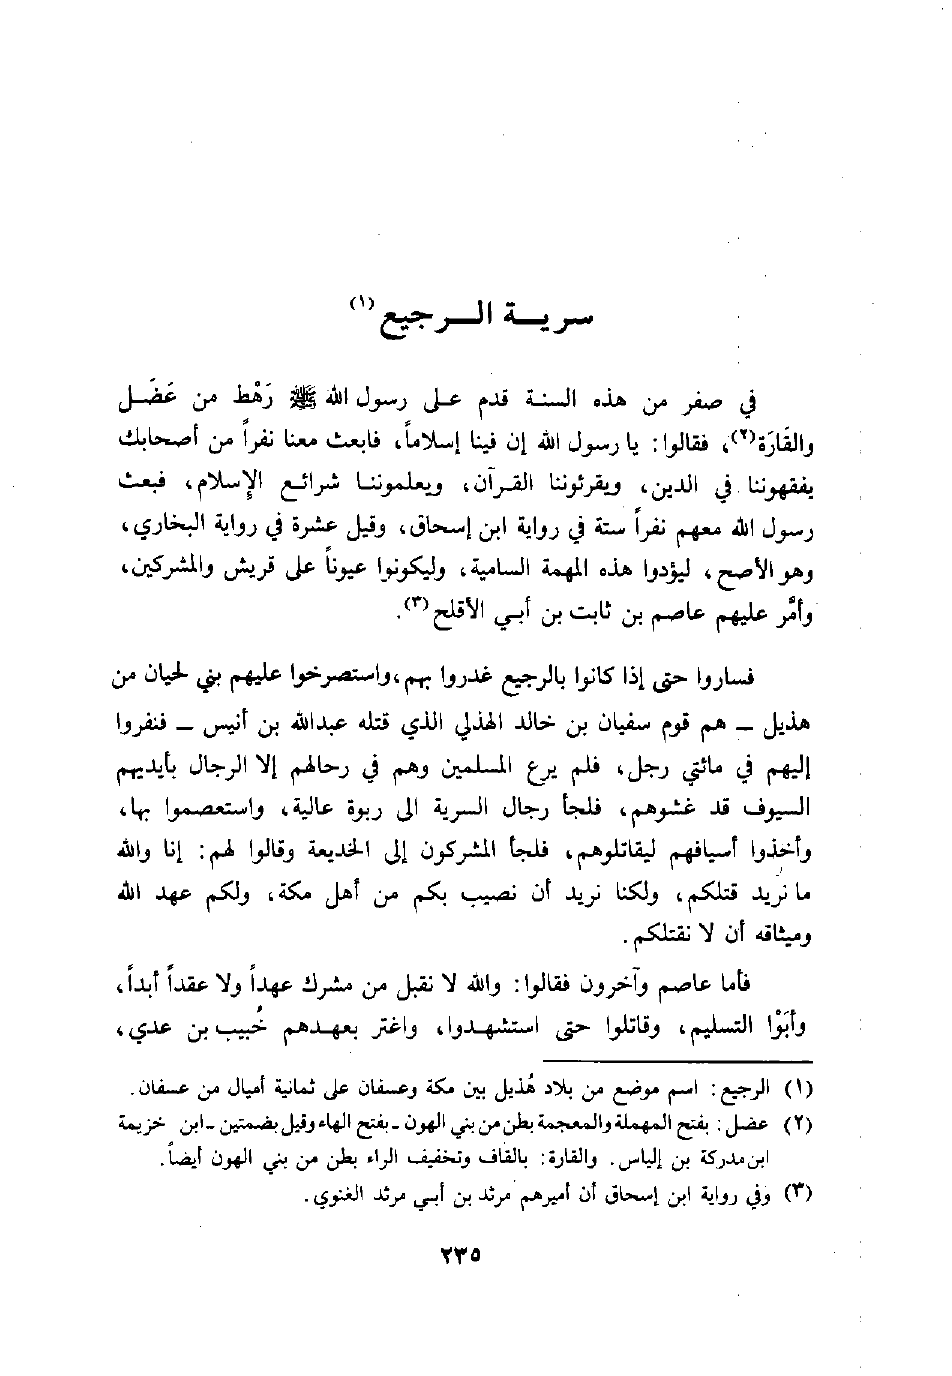 سرية الرجيع (١)
في صفر من هذه السنة قدم على رسول الله ﷺ رَهْط من عَضَل
والقَارَة(٢)، فقالوا: يا رسول الله إن فينا إسلاماً، فابعث معنا نفراً من أصحابك
يفقهوننا في الدين، ويقرئوننا القرآن، ويعلموننا شرائع الإسلام، فبعث
رسول الله معهم نفراً ستة في رواية ابن إسحاق، وقيل عشرة في رواية البخاري،
وهو الأصح، ليؤدوا هذه المهمة السامية، وليكونوا عيوناً على قريش والمشركين،
وأمَّر عليهم عاصم بن ثابت بن أبي الأقلح(٣).
فساروا حتى إذا كانوا بالرجيع غدروا بهم، واستصرخوا عليهم بني لحيان من
هذيل ــ هم قوم سفيان بن خالد الهذلي الذي قتله عبدالله بن أنيس ــ فنفروا
إليهم في مائتي رجل، فلم يرع المسلمين وهم في رحالهم إلا الرجال بأيديهم
السيوف قد غشوهم، فلجأ رجال السرية الى ربوة عالية، واستعصموا بها،
وأخذوا أسيافهم ليقاتلوهم، فلجأ المشركون إلى الخديعة وقالوا لهم: إنا والله
ما نريد قتلكم، ولكنا نريد أن نصيب بكم من أهل مكة، ولكم عهد الله
وميثاقه أن لا نقتلكم.
فأما عاصم وآخرون فقالوا: والله لا نقبل من مشرك عهداً ولا عقداً أبداً،
وأبَوْا التسليم، وقاتلوا حتى استشهدوا، واغتر بعهدهم خُبيب بن عدي،
(١) الرجيع: اسم موضع من بلاد هُذيل بين مكة وعسفان على ثمانية أميال من عسفان.
(٢) عضل: بفتح المهملة والمعجمة بطن من بني الهون ـ بفتح الهاء وقيل بضمتين ـ ابن خزيمة
ابن مدركة بن إلياس. والقارة: بالقاف وتخفيف الراء بطن من بني الهون أيضاً.
(٣) وفي رواية ابن إسحاق أن أميرهم مرثد بن أبي مرثد الغنوي.
٢٣٥